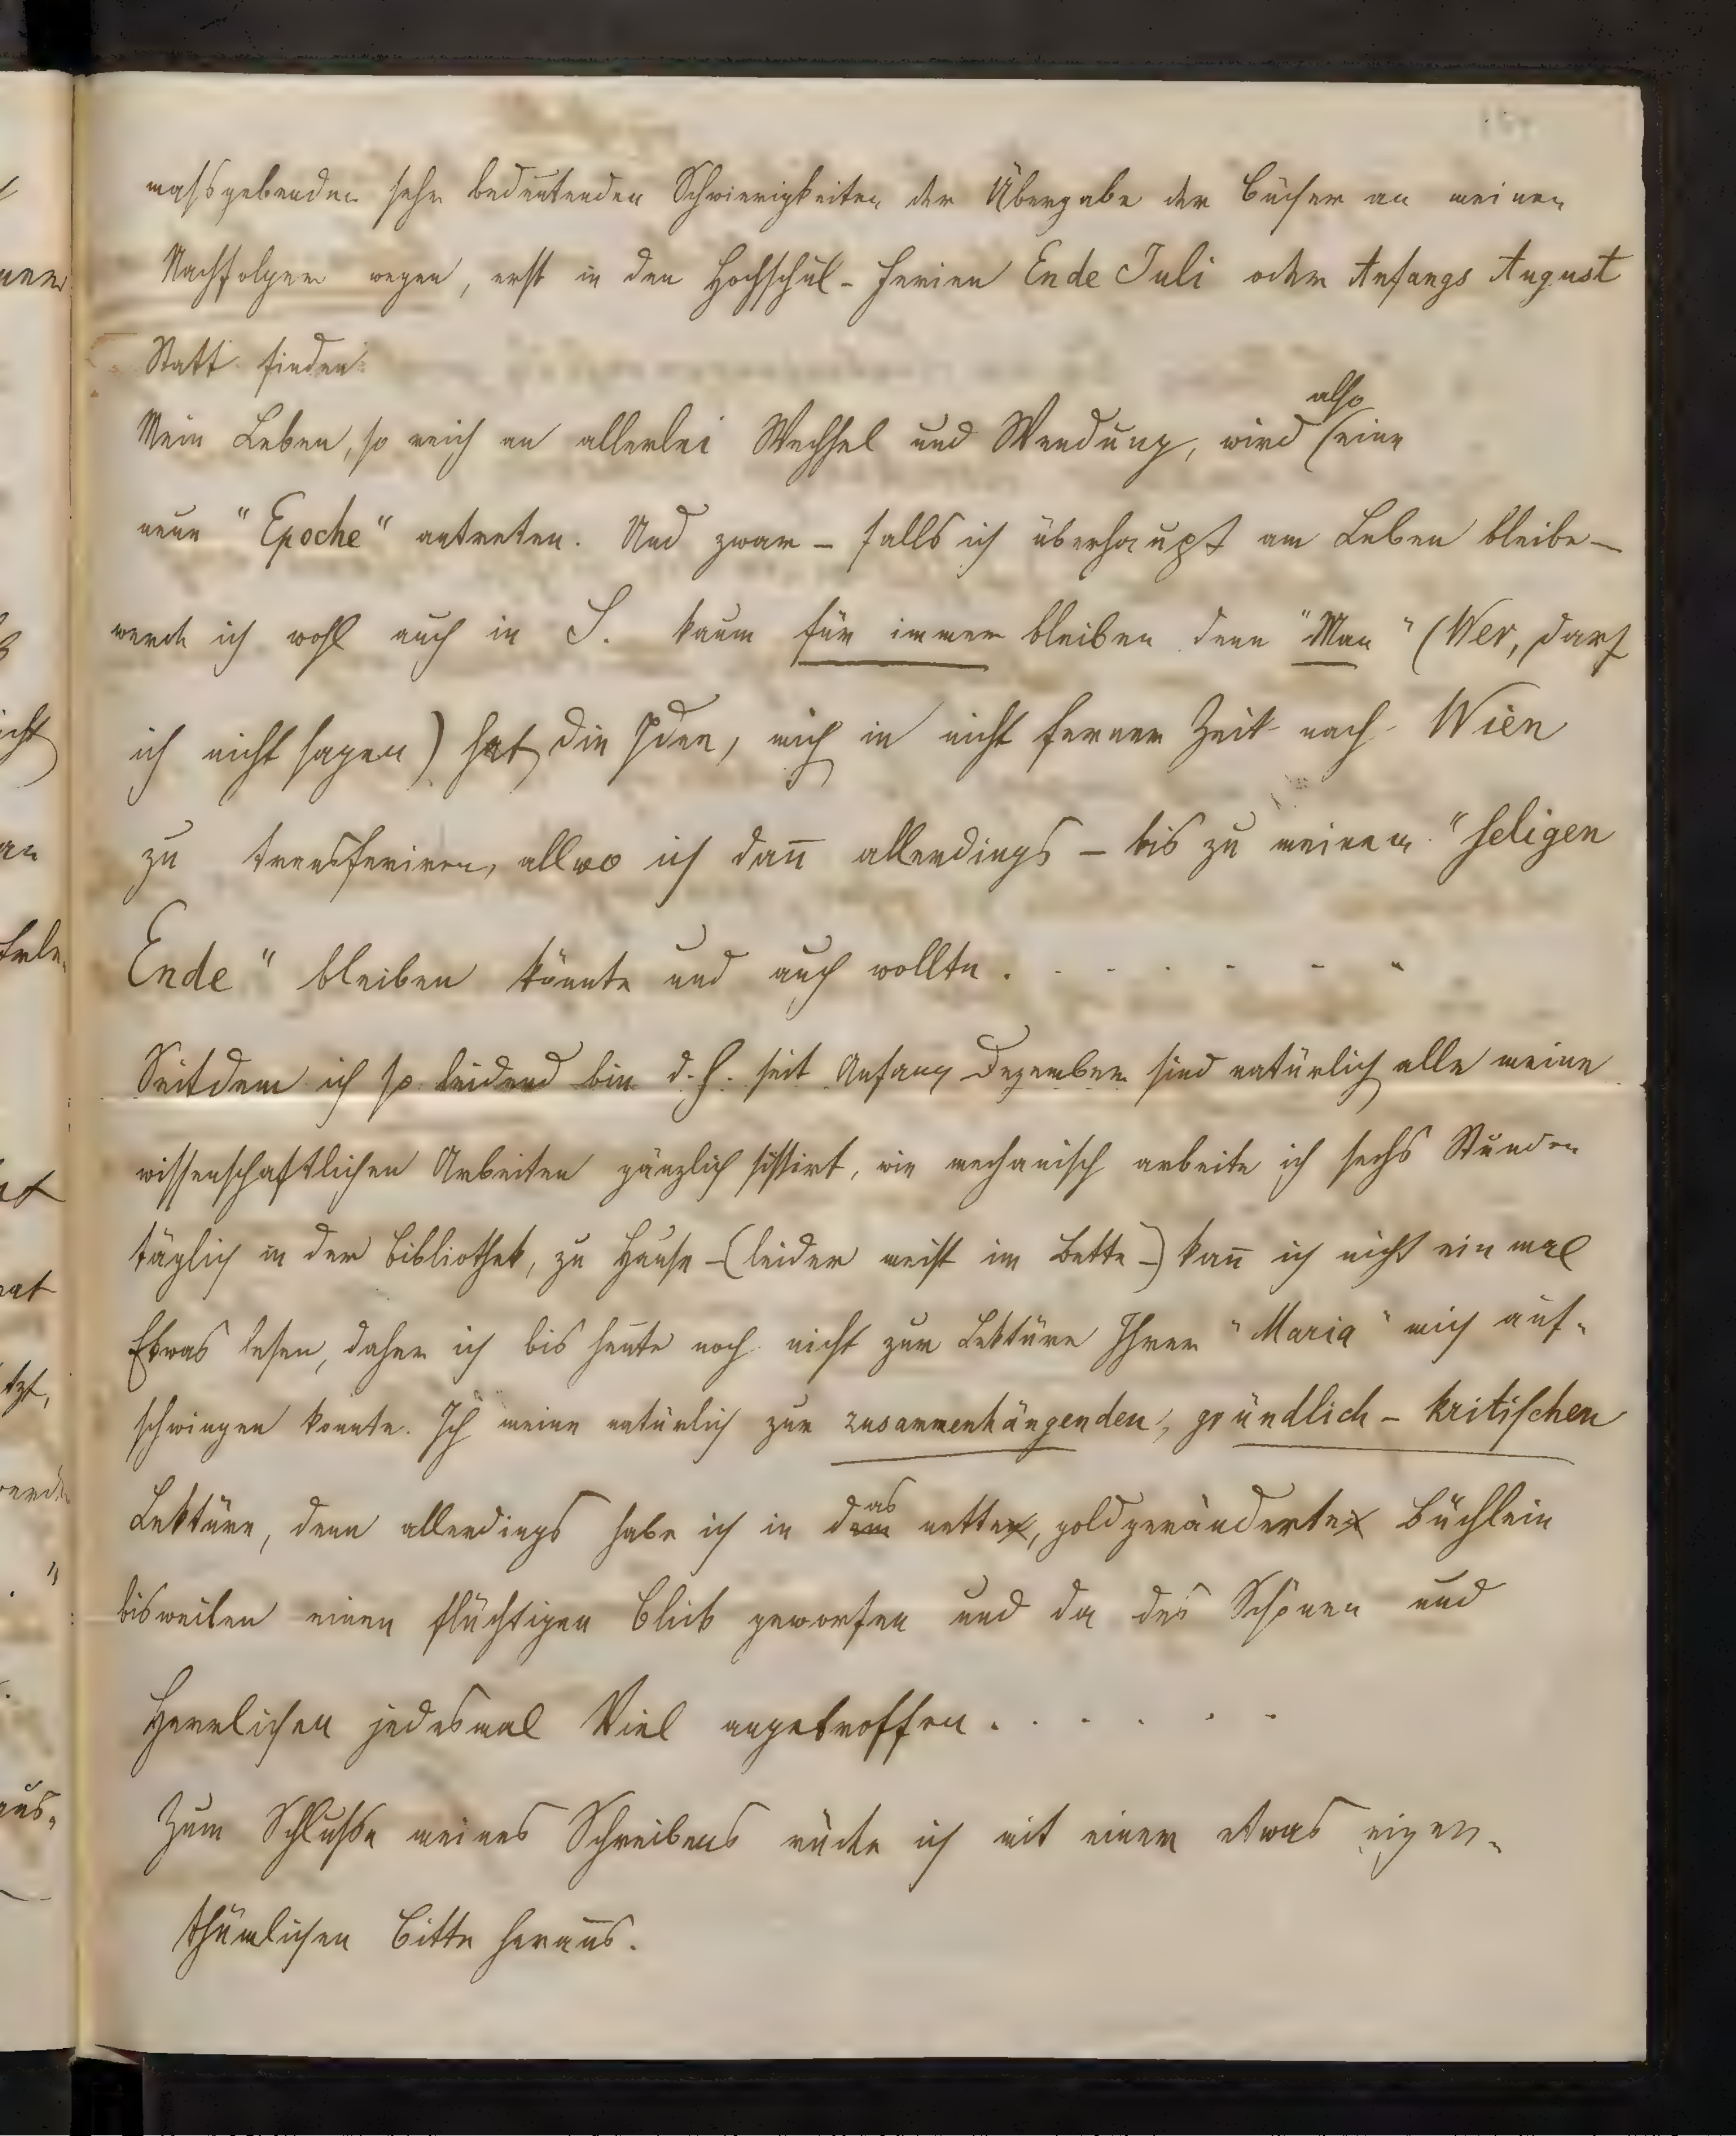 massgebenden sehr bedeutenden Schwierigkeiten der Übergabe der Bücher an meinen
Nachfolger wegen, erst in den Hochschul-Ferien Ende Juli oder Anfangs August
Statt finden.
also
Mein Leben, so reich an allerlei Wechsel und Wendung, wird eine
neue "Epoche" antreten. Und zwar – falls ich überhaupt am Leben bleibe –
werde ich wohl auch in S. kaum für immer bleiben denn "Man" (Wer, darf
ich nicht sagen) hat die Idee, mich in nicht ferner Zeit nach Wien
zu transferiren, allwo ich dan̄ allerdings – bis zu meinem "seligen
Ende" bleiben könnte und auch wollte. . . . . . . .
Seitdem ich so leidend bin d. h. seit Anfang Dezember sind natürlich alle meine
wissenschaftlichen Arbeiten gänzlich sistirt, wie mechanisch arbeite ich sechs Stunden
täglich in der Bibliothek, zu Hause – (leider meist im Bette –) kan̄ ich nicht ein mal
Etwas lesen, daher ich bis heute noch nicht zur Lektüre Ihrer "Maria" mich auf-
schwingen konnte. Ich meine natürlich zur zusammenhängenden, gründlich – kritischen
as
Lektüre, denn allerdings habe ich in dem netter, goldgeränderter Büchlein
bisweilen einen flüchtigen Blick geworfen und da des Schönen und
Herrlichen jedesmal Viel angetroffen. . . . . . .
Zum Schluße meines Schreibens rücke ich mit einer etwas eigen-
thümlichen Bitte heraus.